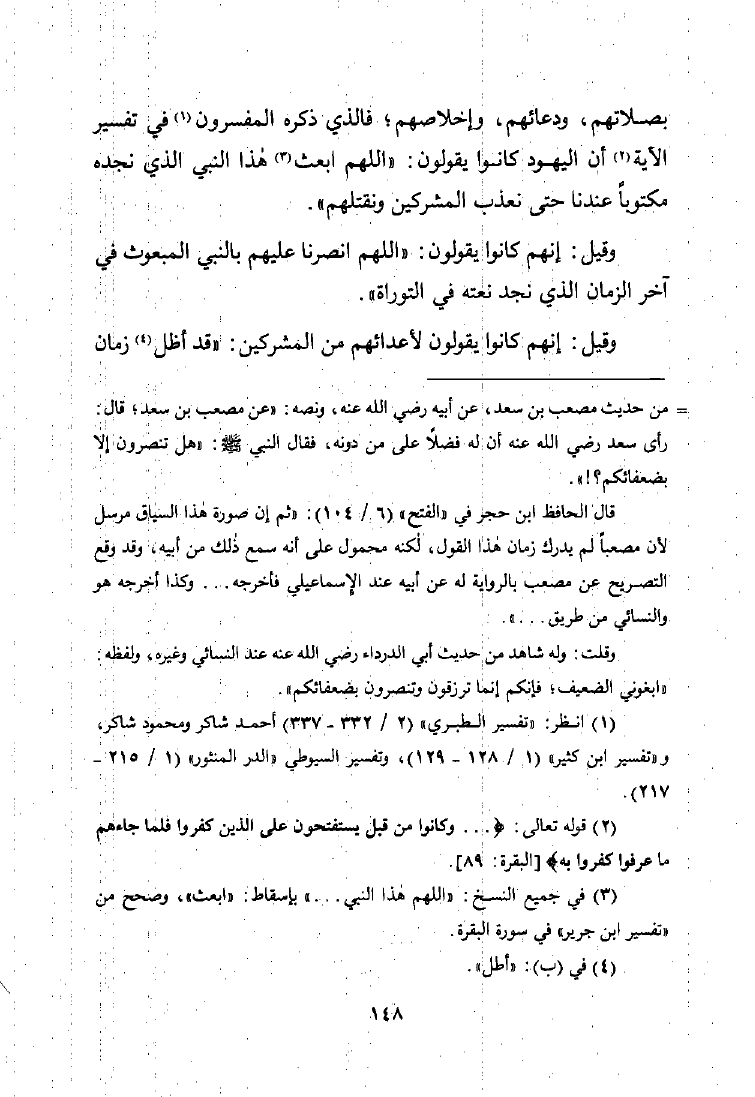 بصلاتهم، ودعائهم، وإخلاصهم؛ فالذي ذكره المفسرون(١) في تفسير
الآية(٢) أن اليهود كانوا يقولون: «اللهم ابعث(٣) هٰذا النبي الذي نجده
مكتوباً عندنا حتى نعذب المشركين ونقتلهم».
وقيل: إنهم كانوا يقولون: «اللهم انصرنا عليهم بالنبي المبعوث في
آخر الزمان الذي نجد نعته في التوراة».
وقيل: إنهم كانوا يقولون لأعدائهم من المشركين: «قد أظل(٤) زمان
= من حديث مصعب بن سعد، عن أبيه رضي الله عنه، ونصه: «عن مصعب بن سعد؛ قال:
رأى سعد رضي الله عنه أن له فضلًا على من دونه، فقال النبي ﷺ: «هل تنصرون إلا
بضعفائكم؟!».
قال الحافظ ابن حجر في «الفتح» (٦ / ١٠٤): «ثم إن صورة هٰذا السياق مرسل
لأن مصعباً لم يدرك زمان هٰذا القول، لٰكنه محمول على أنه سمع ذٰلك من أبيه، وقد وقع
التصريح عن مصعب بالرواية له عن أبيه عند الإسماعيلي فأخرجه... وكذا أخرجه هو
والنسائي من طريق...».
وقلت: وله شاهد من حديث أبي الدرداء رضي الله عنه عند النسائي وغيره، ولفظه:
«ابغوني الضعيف؛ فإنكم إنما ترزقون وتنصرون بضعفائكم».
(١) انظر: «تفسير الطبري» (٢ / ٣٣٢ ـ ٣٣٧) أحمد شاكر ومحمود شاكر،
و«تفسير ابن كثير» (١ / ١٢٨ ـ ١٢٩)، وتفسير السيوطي «الدر المنثور» (١ / ٢١٥ ـ
٢١٧).
(٢) قوله تعالى: ﴿... وكانوا من قبل يستفتحون على الذين كفروا فلما جاءهم
ما عرفوا كفروا به﴾ [البقرة: ٨٩].
(٣) في جميع النسخ: «اللهم هٰذا النبي...» بإسقاط: «ابعث»، وصحح من
«تفسير ابن جرير» في سورة البقرة.
(٤) في (ب): «أطل».
١٤٨